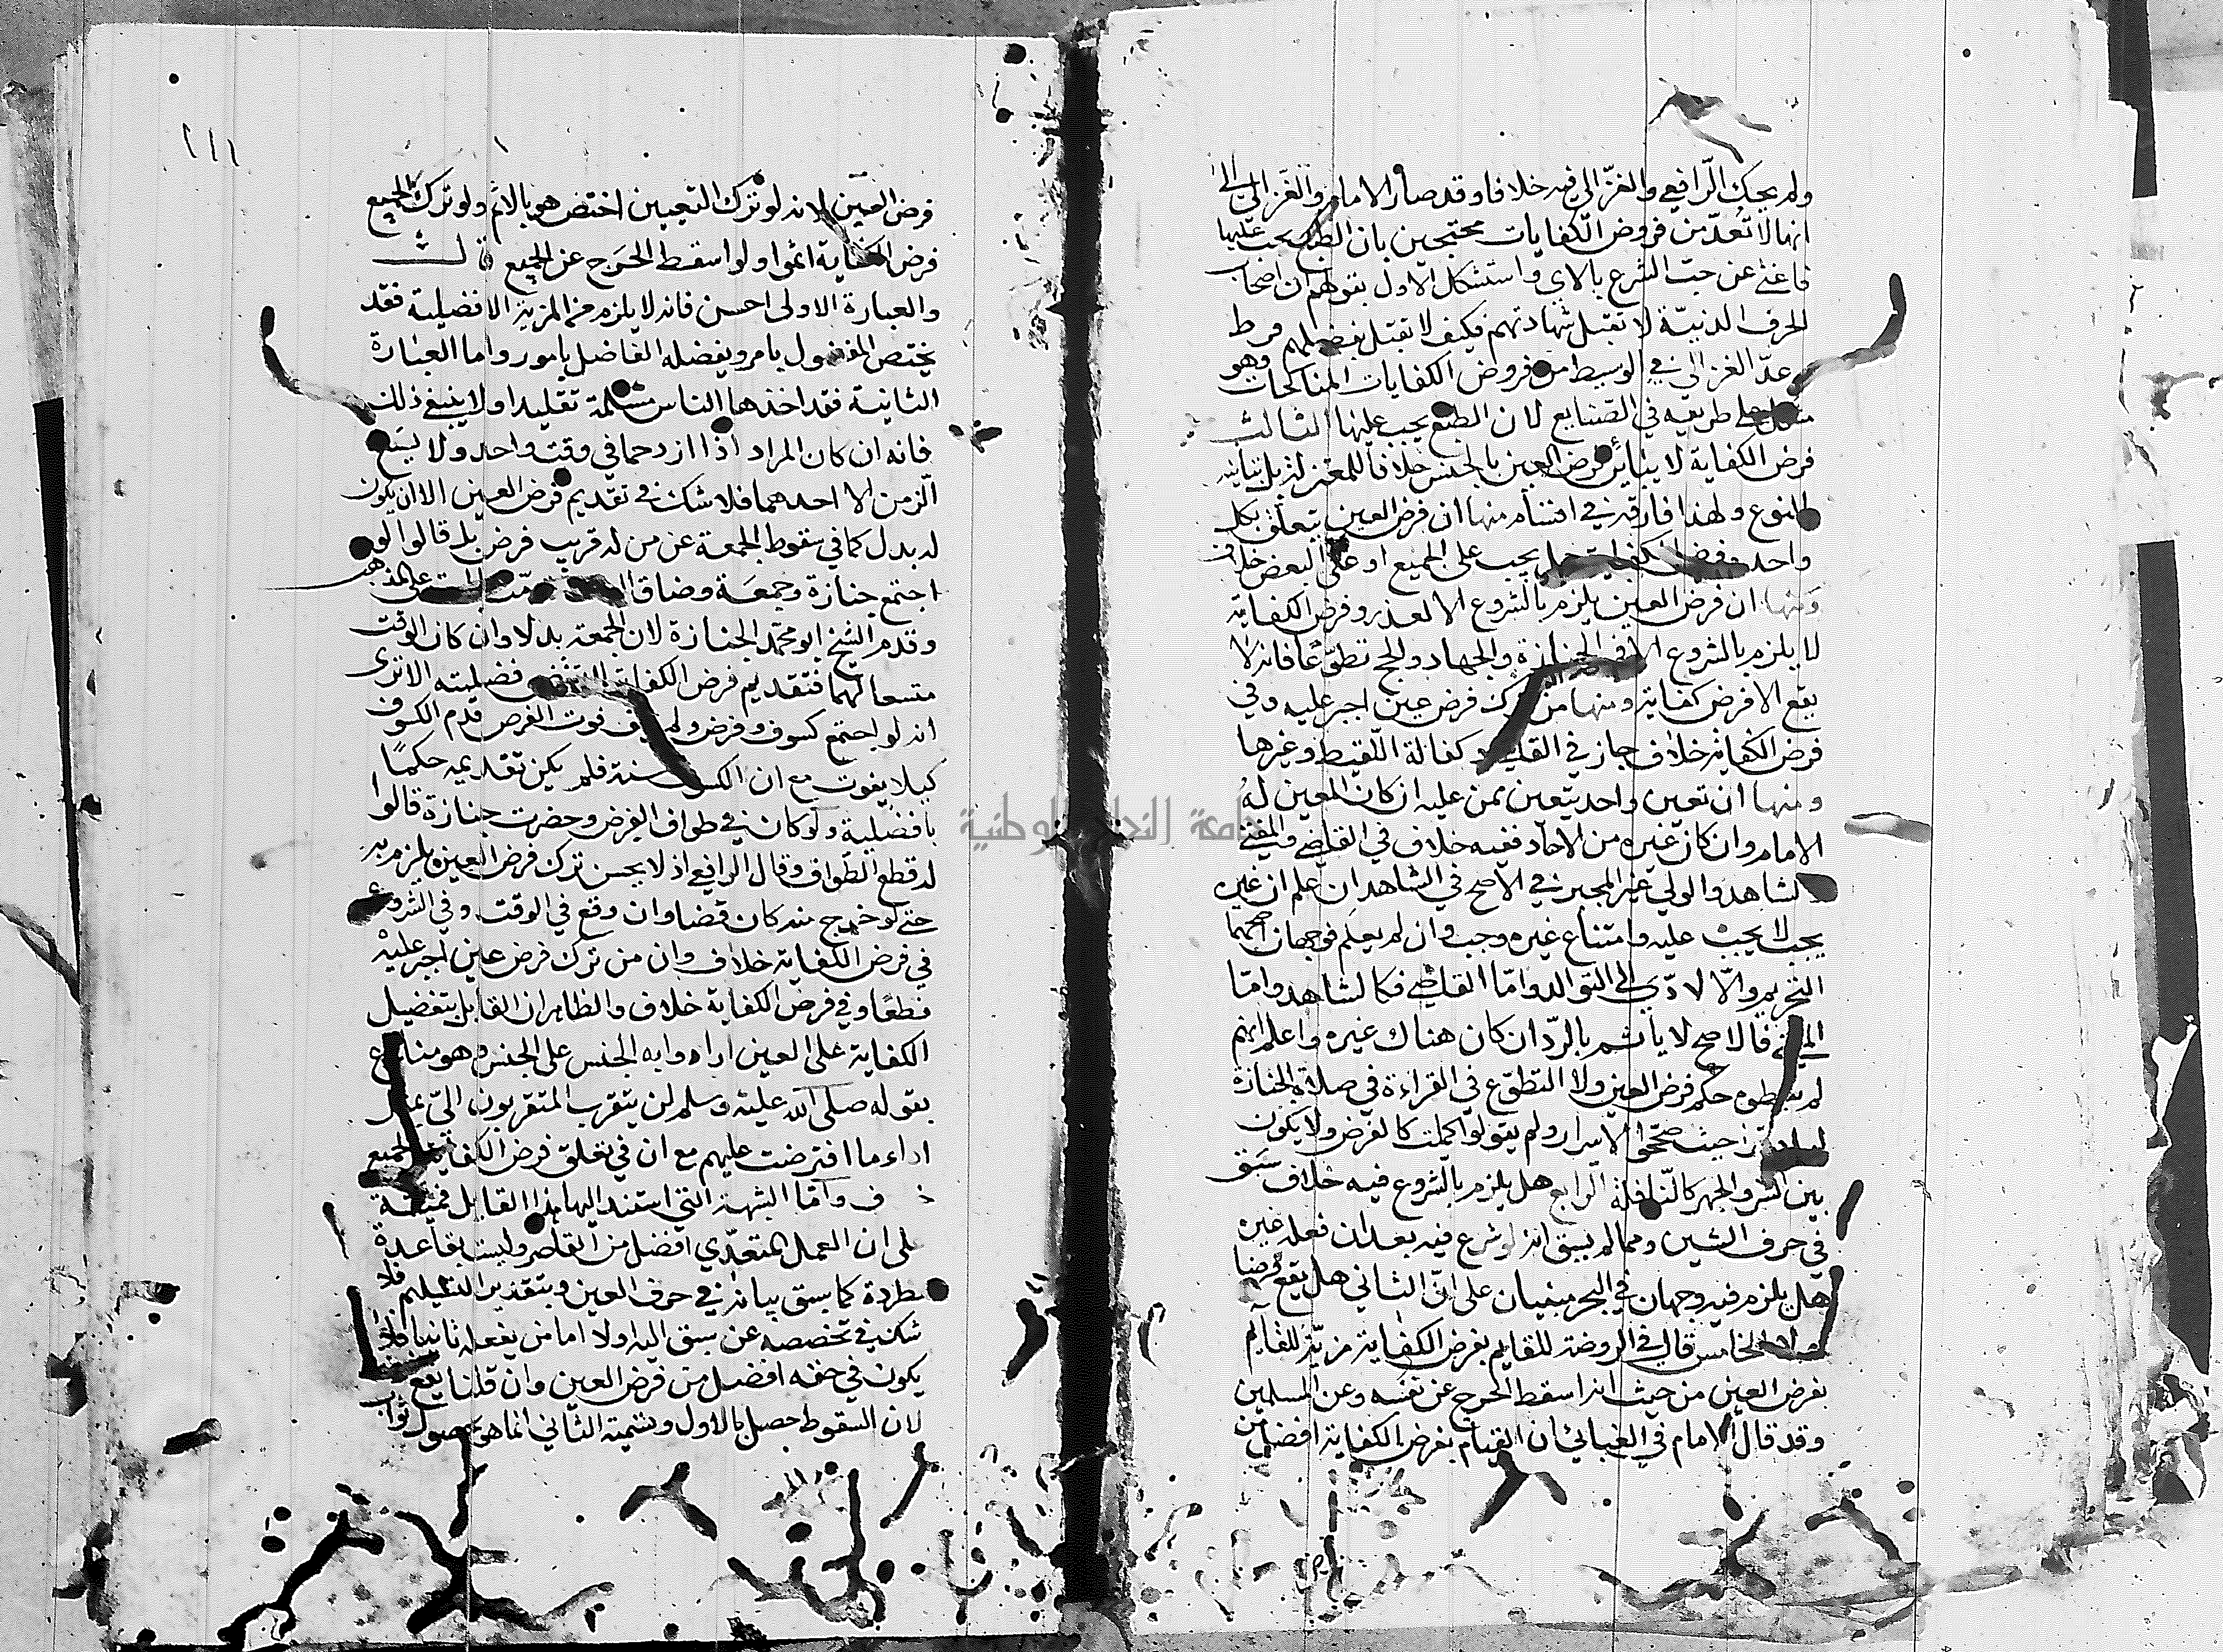 ولم يحك الرافعي والغزالي فيه خلافا وقد صار الامام والغزالي الى
انها لا تعد من فروض الكفايات محتجين بان الطبع يحث عليها
فاغنى عن حث الشرع بالاي واستشكل الاول بقولهم ان اصحاب
الحرف الدنية لا تقبل شهادتهم فكيف لا تقبل بفعلهم فرط
عد الغزالي في الوسيط من فروض الكفايات المناكحات وهو
مشكل على طريقه في الصنايع لان الطبع يحث عليها الثالث
فرض الكفاية لا يباين فرض العين بالجنس خلافا للمعتزلة بل يباينه
بالنوع ولهذا فارقه في اقسام منها ان فرض العين يتعلق بكل
واحد وفرض الكفاية هل يجب على الجميع او على البعض خلاف
ومنها ان فرض العين يلزم بالشروع الا لعذر وفرض الكفاية
لا يلزم بالشروع الا في الجنازة والجهاد والحج تطوعا فانه لا
يقع الا فرض كفاية ومنها من ترك فرض عين اجبر عليه وفي
فرض الكفاية خلاف جاز في القاضي وكفالة اللقيط وغيرها
ومنها ان تعين واحد يتعين بمن عليه ان كان المعين له
الامام وان كان غيره من الآحاد ففيه خلاف في القاضي والمفتي
والشاهد والولي غير المجبر في الاصح في الشاهد ان علم ان غيره
يجب لا يجب عليه وامتناع غيره وجب وان لم يعلم فوجهان اصحهما
التحريم والا لادى الى التواكل واما القاضي فكالشاهد واما
المفتي فالاصح لا يأثم بالرد ان كان هناك غيره واعلم انهم
لم يعطوه حكم فرض العين ولا التطوع في القراءة في صلاة الجنازة
حيث صححوا الاسرار ولم يقولوا كملت كالفرض ولا يكون
بين السر والجهر كالنافلة الرابع هل يلزم بالشروع فيه خلاف سبق
في حرف الشين ومما لم يسبق انه لو شرع فيه بعد ان فعله غيره
هل يلزم فيه وجهان في البحر مبنيان على ان الثاني هل يقع فرضا
ام لا الخامس قال في الروضة للقايم بفرض الكفاية مزية للقايم
بفرض العين من حيث انه اسقط الحرج عن نفسه وعن المسلمين
وقد قال الامام في الغياثي ان القيام بفرض الكفاية افضل من
١١١
فرض العين لانه لو ترك التعيين اختص هو بالاثم ولو ترك الجميع
فرض الكفاية اثموا ولو اسقط الحرج عن الجميع قلت
والعبارة الاولى احسن فانه لا يلزم من المزية الافضلية فقد
يختص المفضول بامر ويفضله الفاضل بامور واما العبارة
الثانية فقد اخذها الناس مسلمة تقليدا ولا ينبغي ذلك
فانه ان كان المراد اذا ازدحما في وقت واحد ولا يسع
الزمن الا احدهما فلا شك في تقديم فرض العين الا ان يكون
له بدل كما في سقوط الجمعة عن من له قريب فرض بل قالوا لو
اجتمع جنازة وجمعة وضاق الوقت قدمت على المذهب
وقدم الشيخ ابو محمد الجنازة لان للجمعة بدلا وان كان الوقت
متسعا لهما فتقديم فرض الكفاية لا تقتضي فضيلته الا ترى
انه لو اجتمع كسوف وفرض ولم يخف فوت الفرض قدم الكسوف
كيلا يفوت مع ان الكسوف سنة فلم يكن تقديمه حكما
بافضلية ولو كان في طواف الفرض وحضرت جنازة قالوا
له قطع الطواف وقال الرافعي اذ لا يحسن ترك فرض العين ويلزم به
حتى لو خرج منه كان قضا وان وقع في الوقت وفي الشروع
في فرض الكفاية خلاف وان من ترك فرض عين اجبر عليه
قطعا وفي فرض الكفاية خلاف والظاهر ان القايل بتفضيل
الكفاية على العين ارادوا به الجنس على الجنس وهو منازع
بقوله صلى الله عليه وسلم لن يتقرب المتقربون الي بمثل
اداء ما افترضت عليهم مع ان في تعلق فرض الكفاية بالجميع
خلاف واما الشبهة التي استند اليها هذا القايل فمبنية
على ان العمل المتعدي افضل من القاصر وليست بقاعدة
مطردة كما سبق بيانه في حرف العين وبتقدير التسليم فلا
شك في تخصصه عن سبق اليه اولا اما من يفعله ثانيا فلا
يكون في حقه افضل من فرض العين وان قلنا يقع فرضا
لان السقوط حصل بالاول وتسمية الثاني انما هو لحصول ثواب